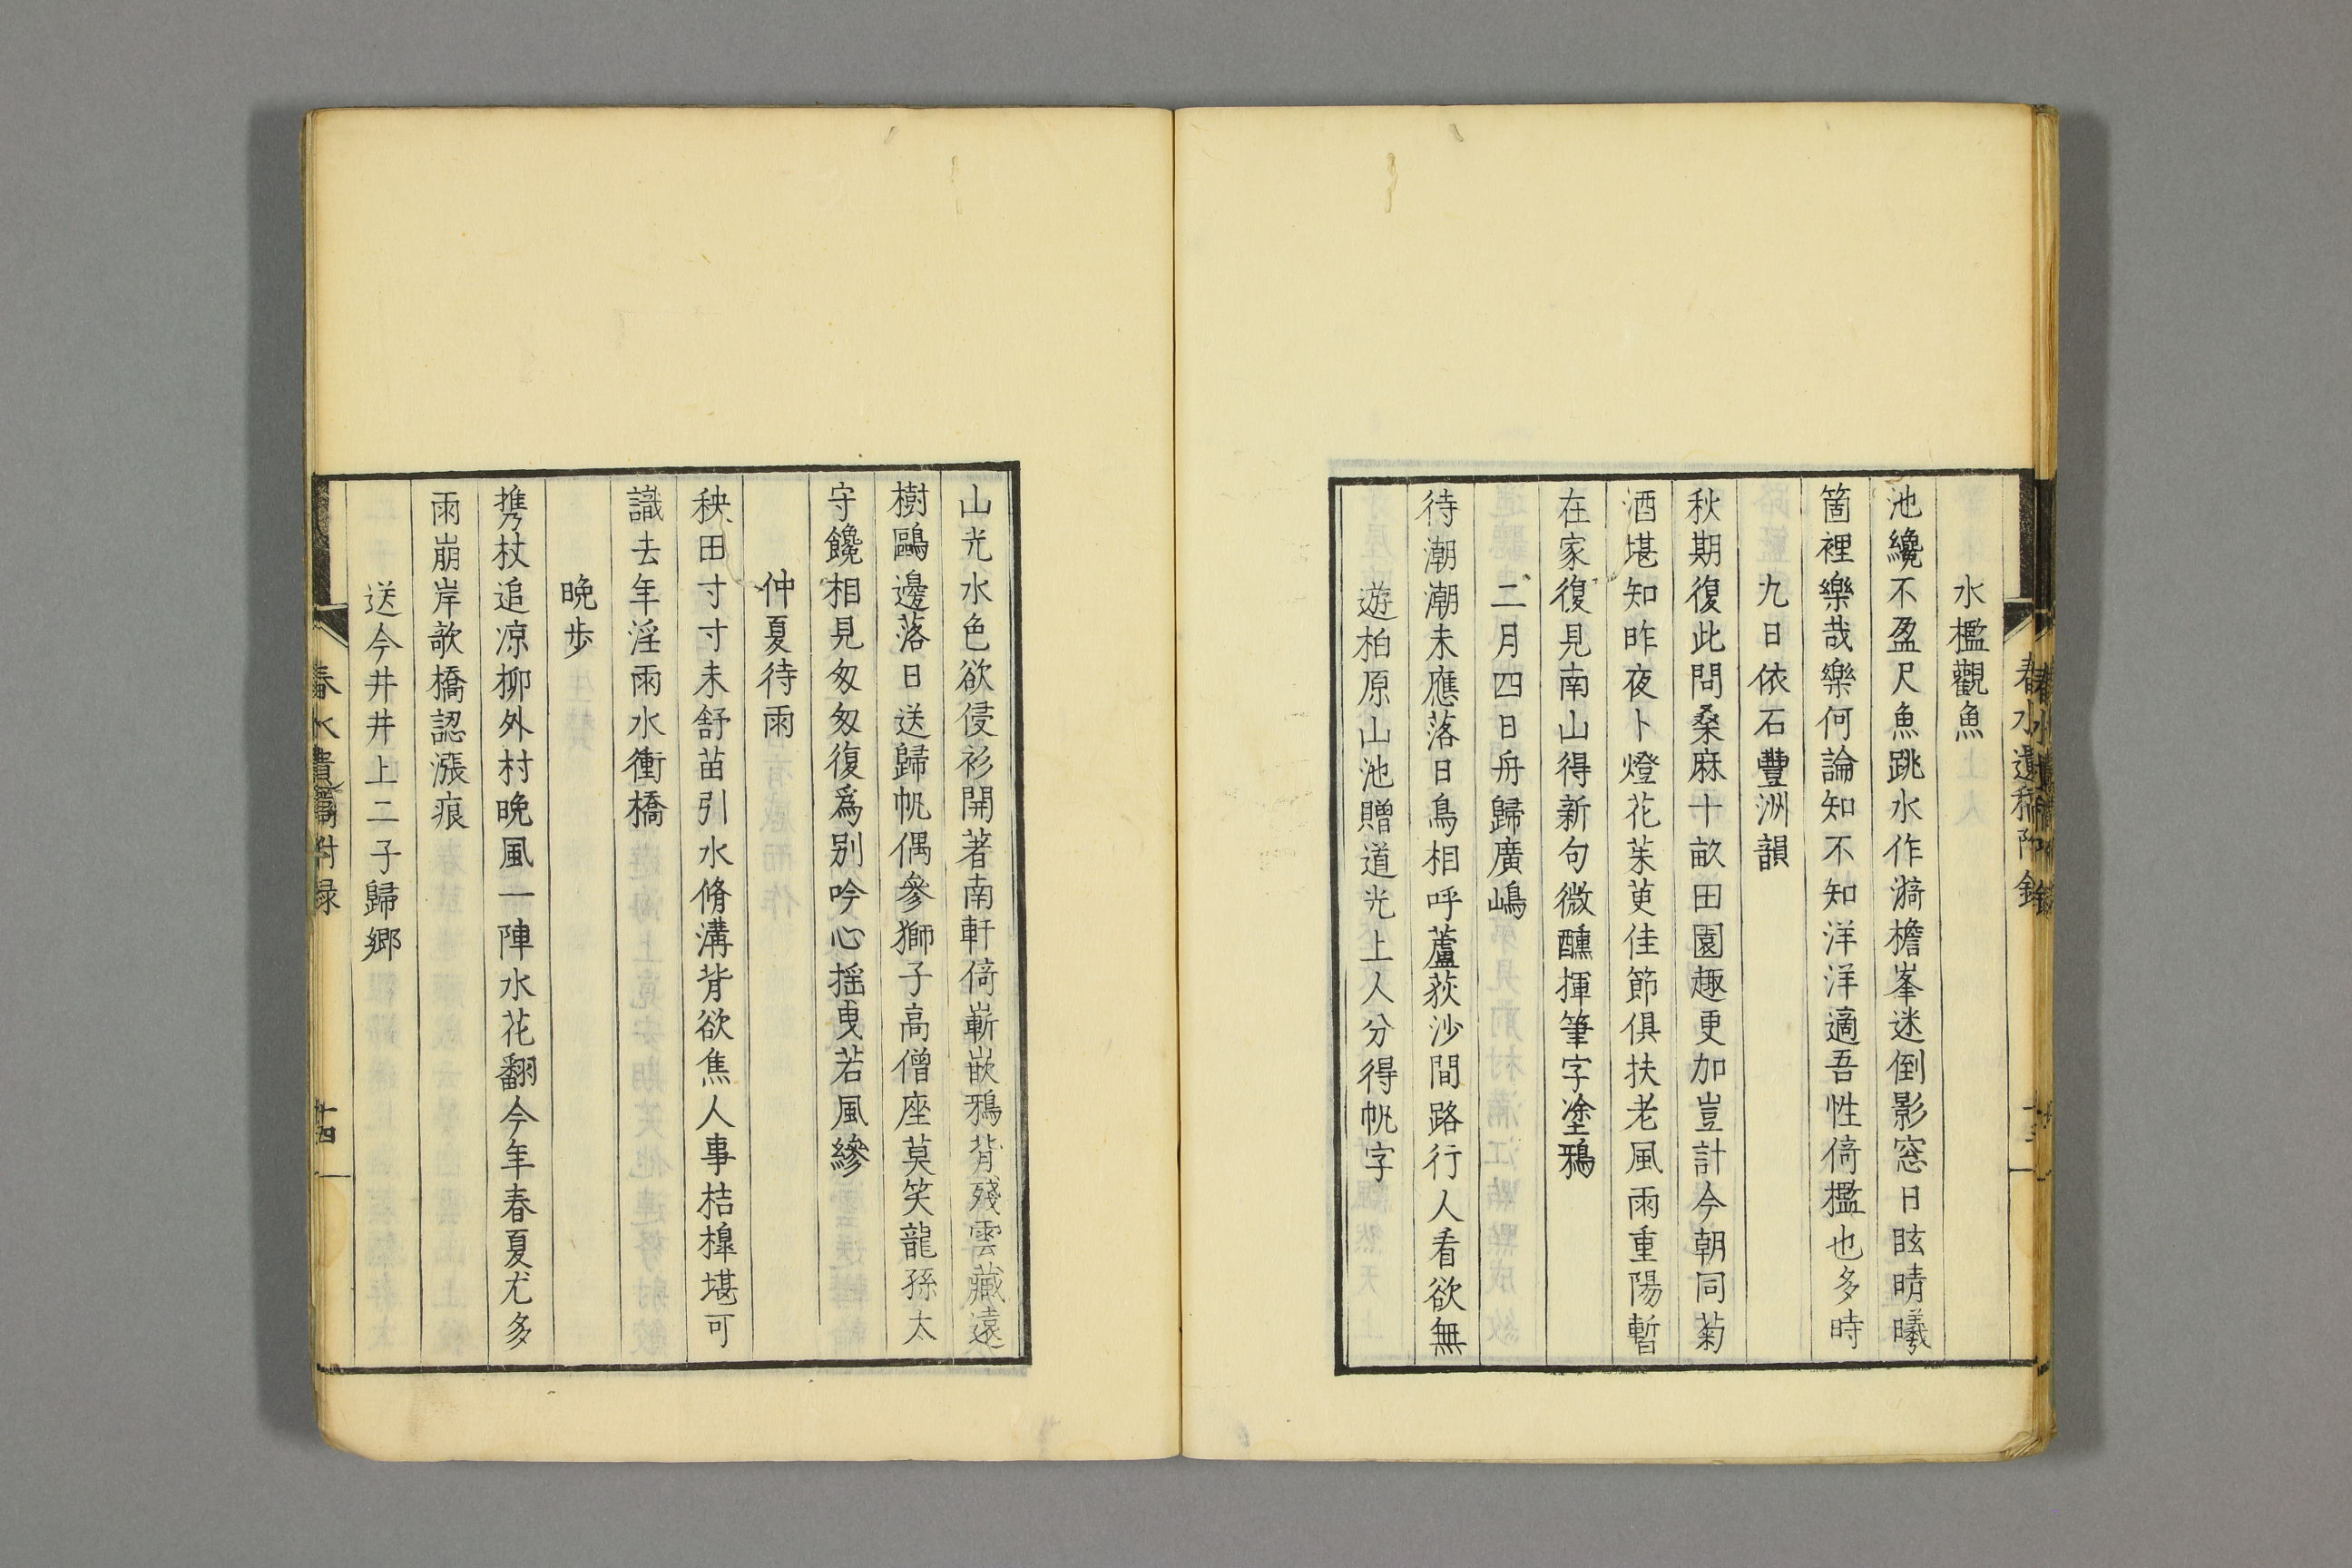 水檻觀魚
池纔不盈尺魚跳水作漪檐峯迷倒影窓日眩晴曦
箇裡樂哉樂何論知不知洋洋適吾性倚檻也多時
九日依石豐洲韻
秋期復此問桑麻十畝田園趣更加豈計今朝同菊
酒堪知昨夜卜燈花茱萸佳節俱扶老風雨重陽暫
在家復見南山得新句微醺揮筆字塗鴉
二月四日舟歸廣嶋
待潮潮未應落日鳥相呼蘆荻沙間路行人看欲無
遊柏原山池贈道光上人分得帆字
山光水色欲侵衫開著南軒倚嶄嵌鴉背殘雲藏遠
樹鷗邊落日送歸帆偶參獅子高僧座莫笑龍孫太
守饞相見匆匆復爲別吟心揺曳若風縿
仲夏待雨
秧田寸寸未舒苗引水脩溝背欲焦人事桔橰堪可
識去年淫雨水衝橋
晩歩
携杖追凉柳外村晩風一陣水花翻今年春夏尤多
雨崩岸欹橋認漲痕
送今井井上二子歸郷
春水遺稿附録
十四